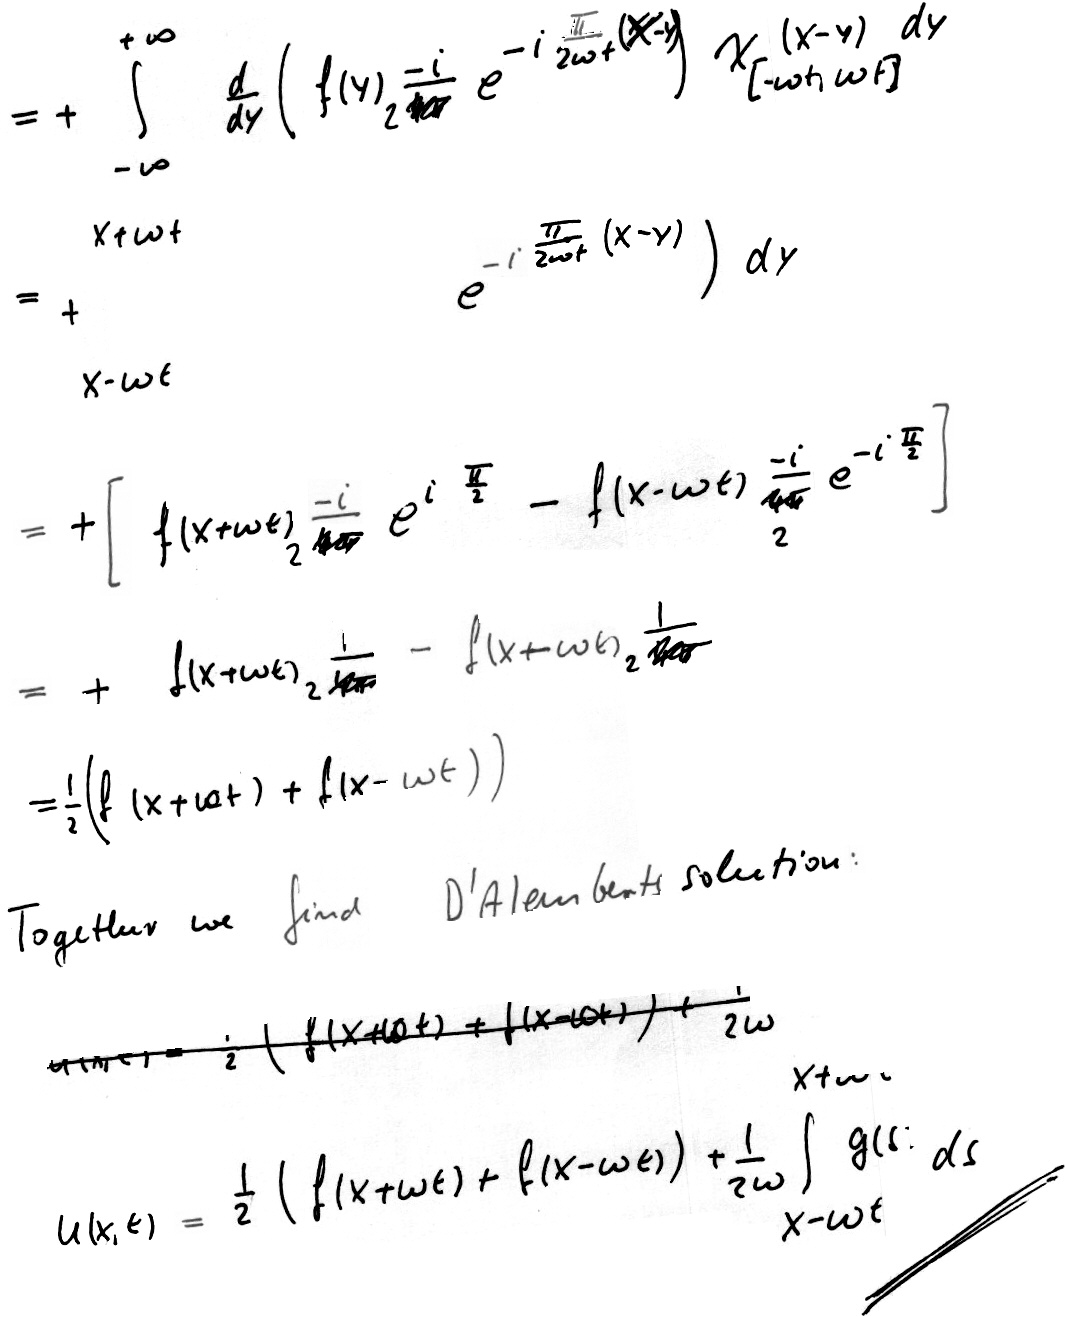 = + ∫_{-∞}^{+∞} d/dy ( f(y) -i/2 e^{-i π/2ωt (x-y)} ) χ_{[-ωt, ωt]} (x-y) dy
= + x+ωt x-ωt e^{-i π/2ωt (x-y)} ) dy
= + [ f(x+ωt) -i/2 e^{i π/2} - f(x-ωt) -i/2 e^{-i π/2} ]
= + f(x+ωt) 1/2 - f(x+ωt) 1/2
= 1/2 ( f(x+ωt) + f(x-ωt) )
Together we find D'Alemberts solution:
1/2 ( f(x+ωt) + f(x-ωt) ) + 1/2ω
u(x,t) = 1/2 ( f(x+ωt) + f(x-ωt) ) + 1/2ω ∫_{x-ωt}^{x+ω} g(s ds